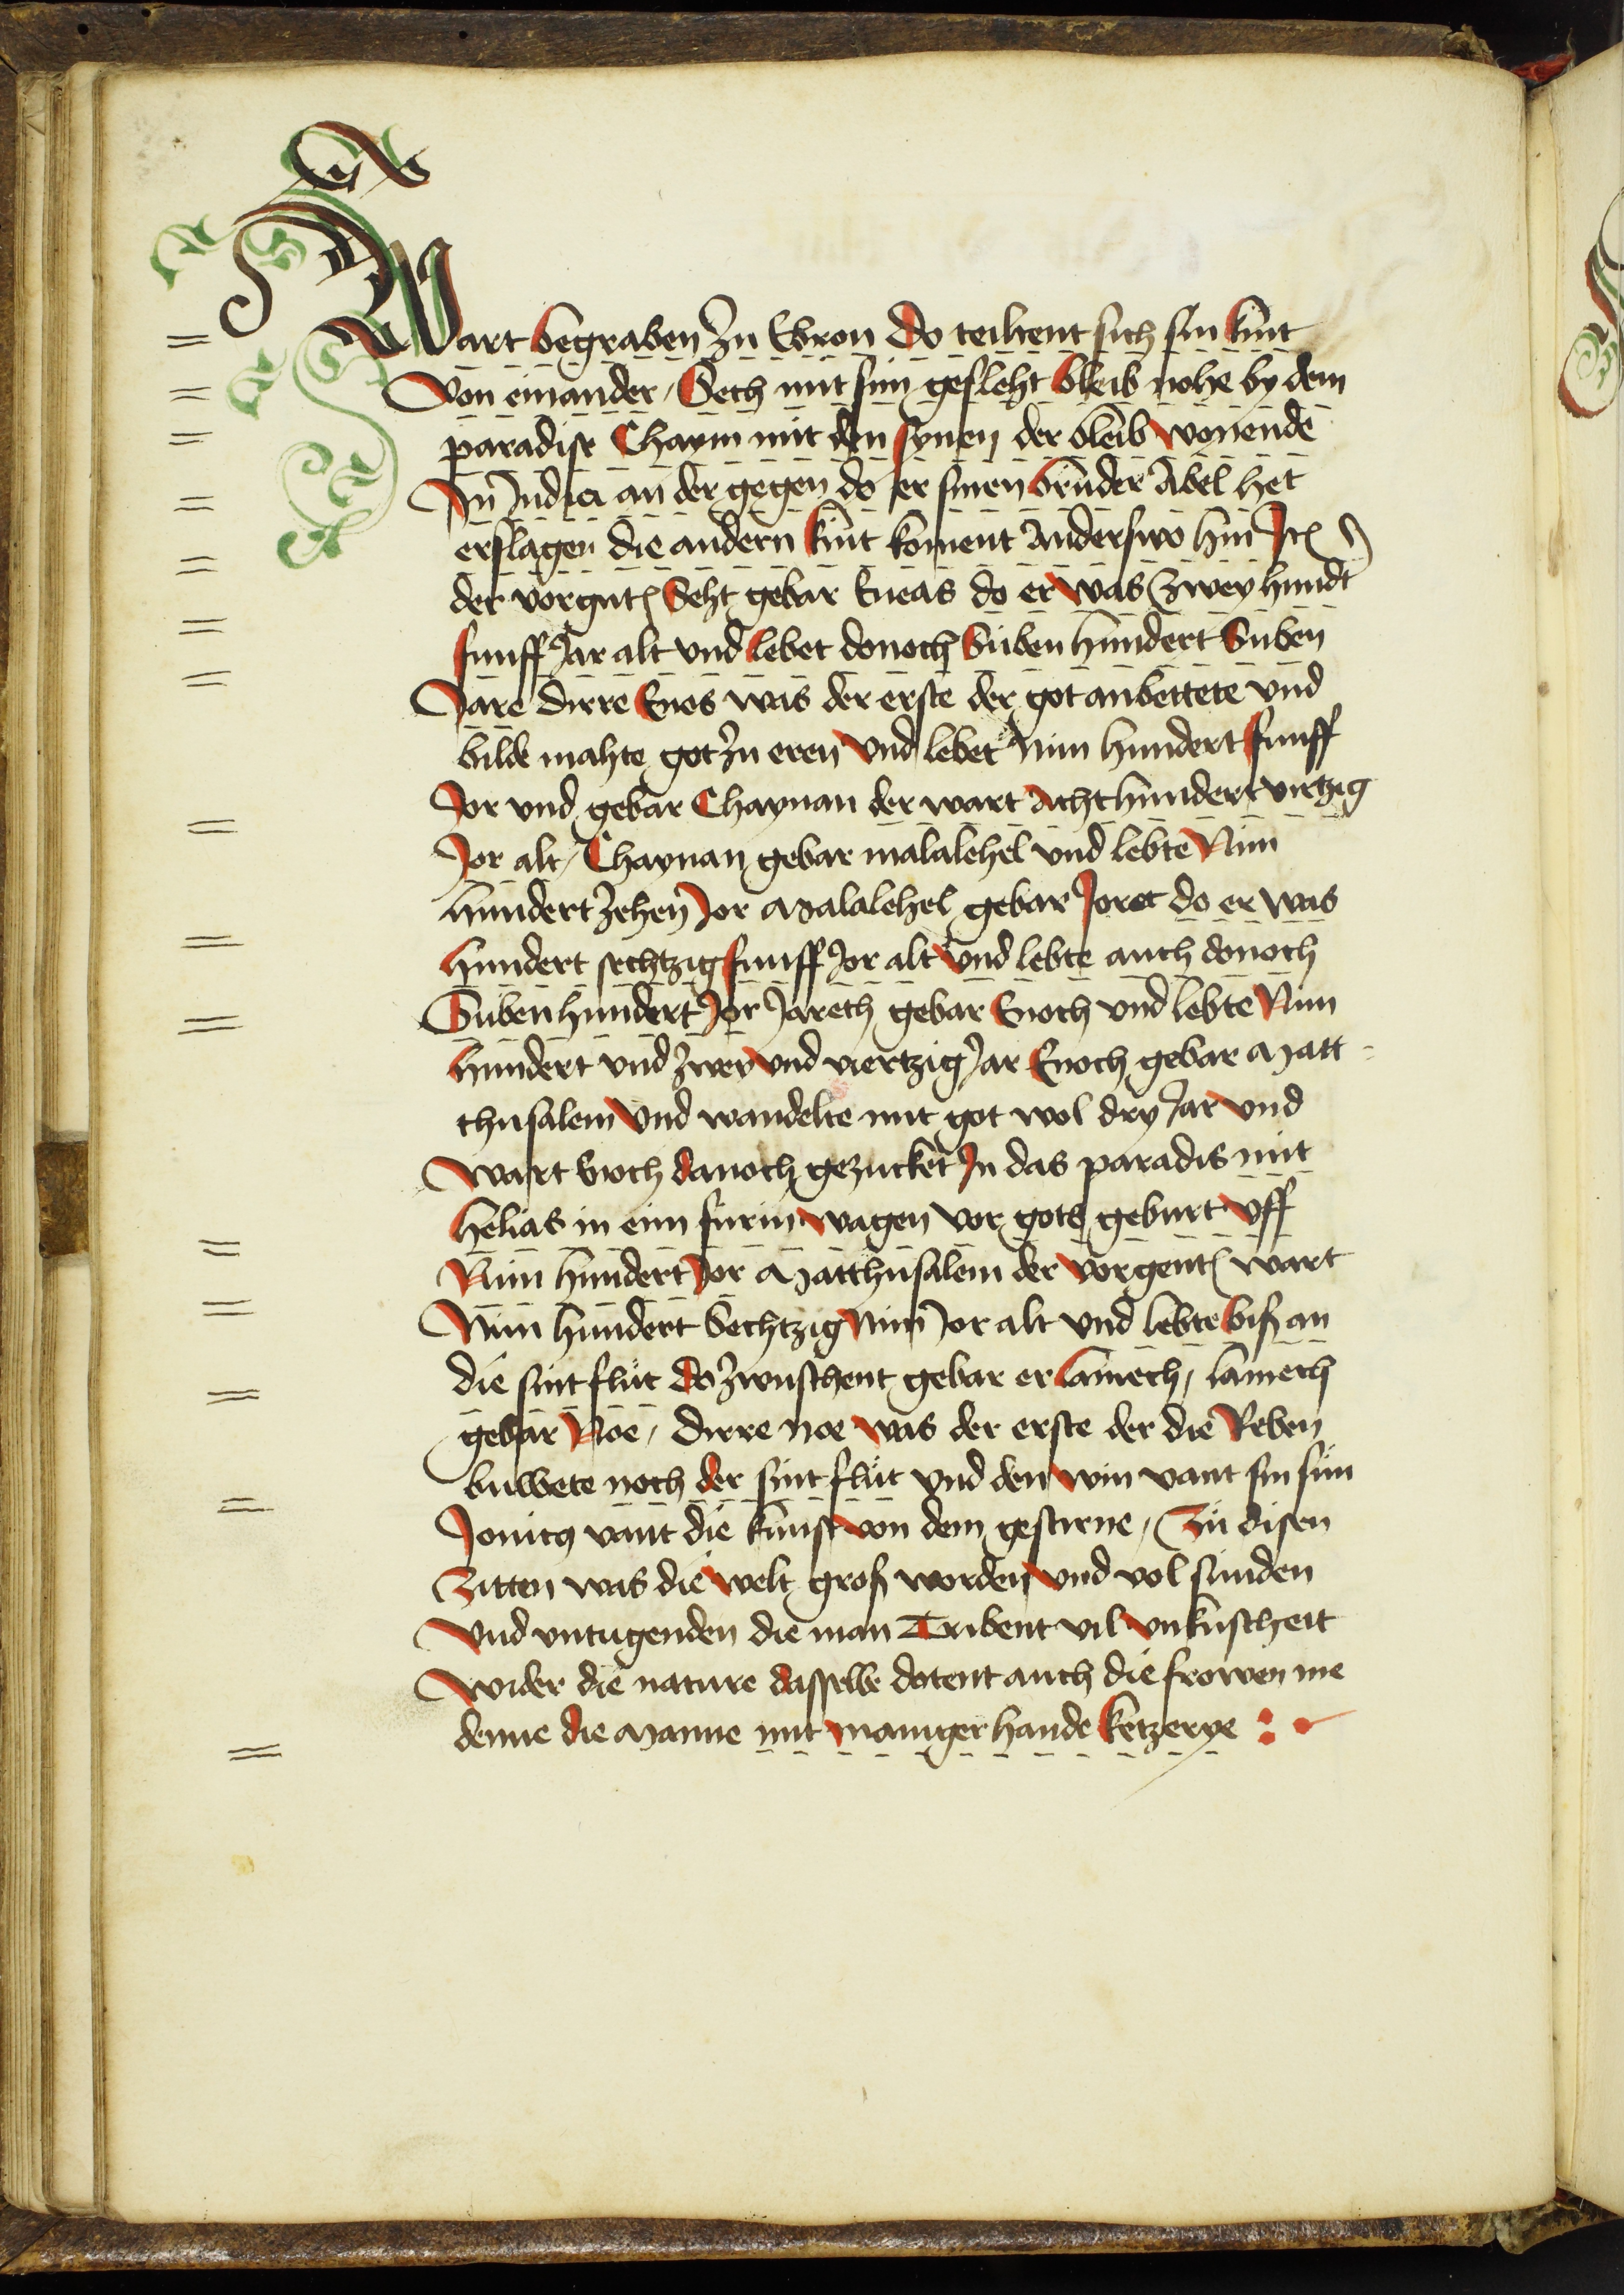 Wart begraben zu Ebron do teiltent sich sin kint
Von einander / Seth mit sim geslеht bleib nohe by dem
paradise Chaym mit den synen der bleib wonende
In Indiea an der gegen do er sinen bruder Abel het
erslagen die andern kint koment anderswo hin Jtꝭ
der vorgntꝭ Seht gebar Eneas do er was Zwey hundt
funff Jar alt vnd lebet donoch Siben hundert Suben
Jare dirre Enos was der erste der got anbettete vnd
bilde mahte got zu eren vnd lebet Nun hundert funff
Jor vnd gebar Chaynan der wart Acht hundert virtzig
Jor alt / Chaynan gebar malalehel vnd lebte Nun
hundert zehen Jor Malalehel gebar Joret do er was
hundert sechtzig funff Jor alt vnd lebte auch donoch
Suben hundert Jor Jareth gebar Enoch vnd lebte Nun
hundert vnd zwey vnd viertzig Jar Enoch gebar Matt-
thusalem vnd wandelte mit got wol dry Jar vnd
wart Enoch danoch gezucket In das paradis mit
helias in eim furin wagen vor gots geburt vff
Nun hundert Jor Matthusalem der vorgentꝭ wart
Nun hundert Sechtzig Nun Jor alt vnd lebte biß an
die sintflut do zwuschent gebar er lamech / lamech
gebar Noe / dirre noe was der erste der die Reben
buwete noch der sintflut vnd den win vant sin sun
Jonicꝯ vant die kunst von dem gestirne / Zu disen
Zitten was die welt groß worden vnd vol sunden
vnd vntugenden die man Tribent vil vnkuscheit
wider die nature dasselbe dotent auch die frowen me
denne die Manne mit maniger hande ketzerye :